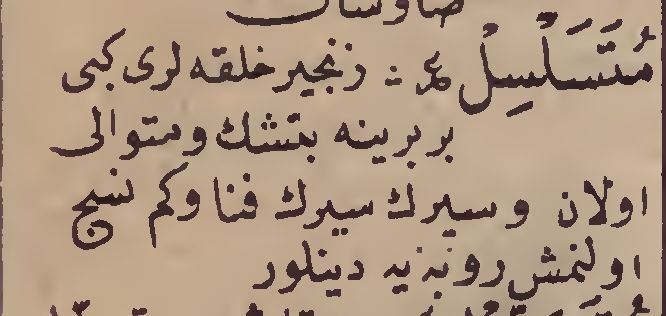 مُتَسَلْسِلْ ع : زنجیر خلقه لری کبی
بربرینه بتشك ومتوالی
اولان وسیرك سیرك فنا وکم نسج
اولنمش روبه یه دینلور